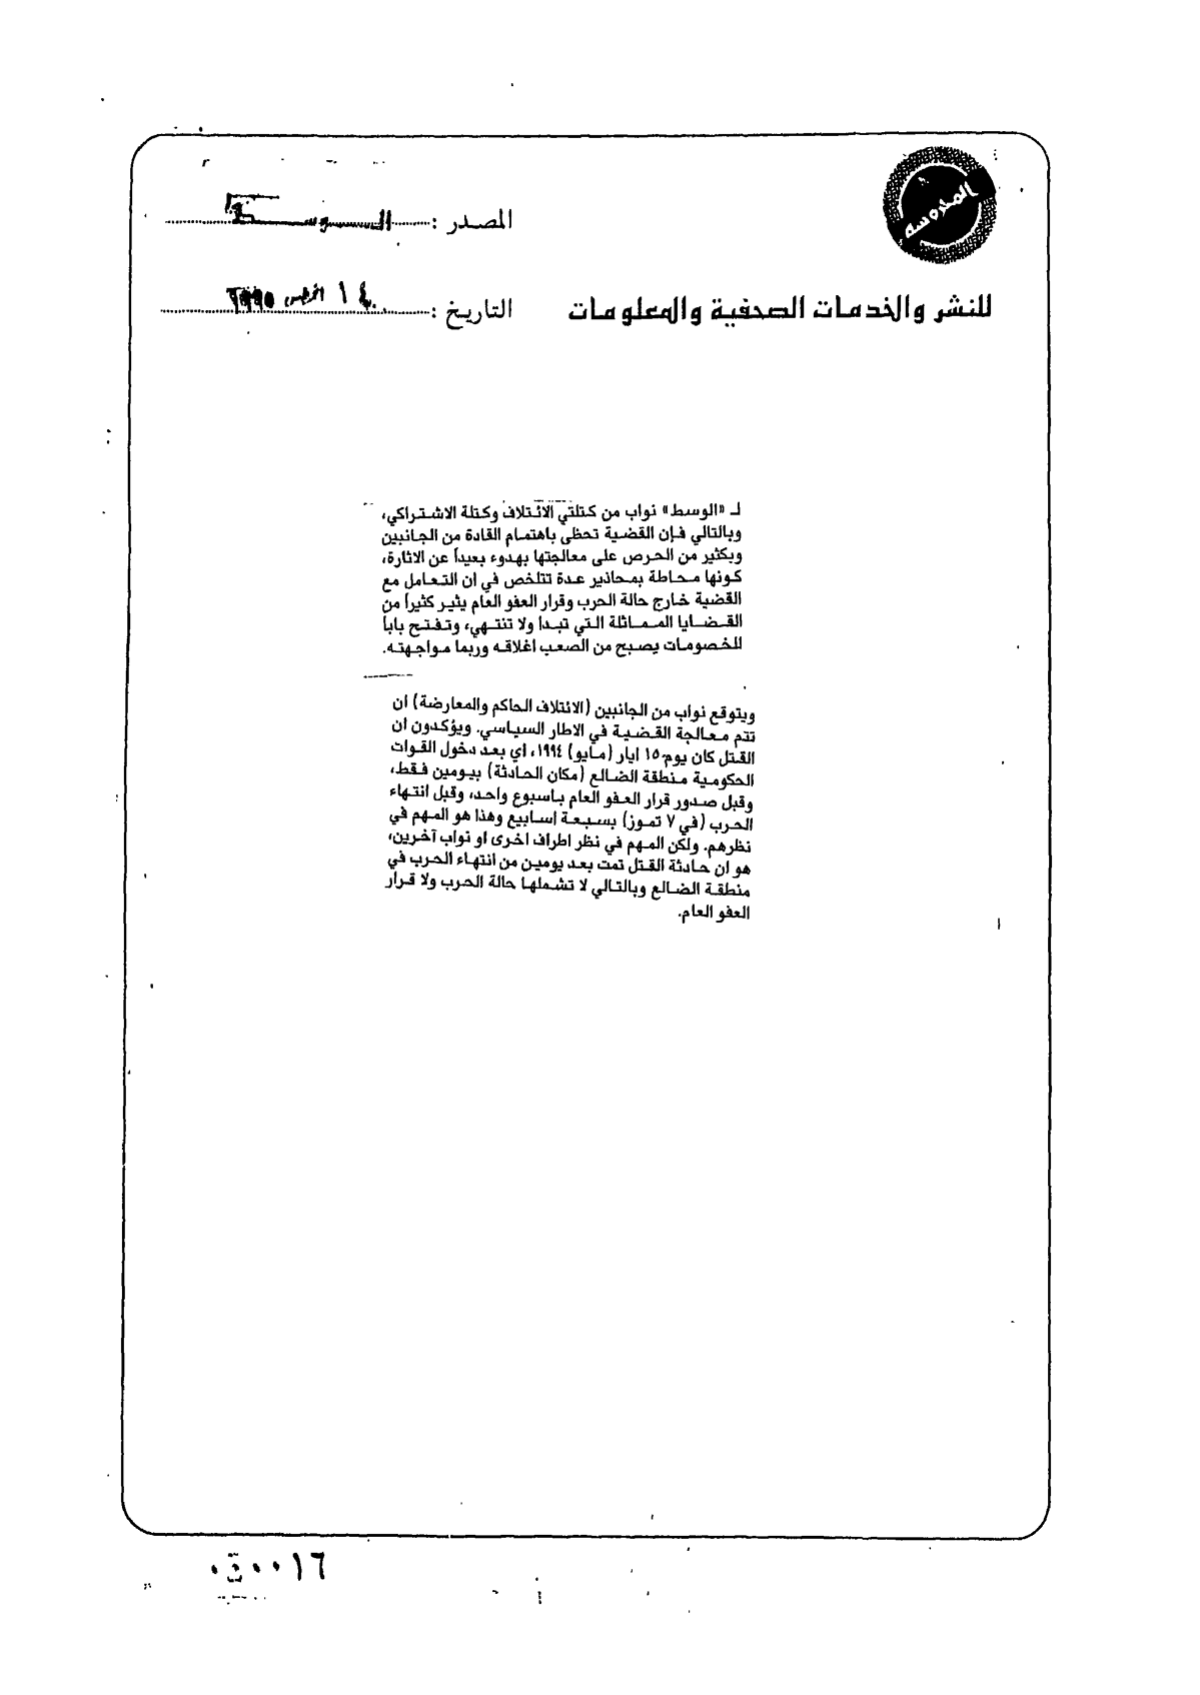 المصدر : الوسط
التاريخ : ١٤ اغسطس ١٩٩٥
للنشر والخدمات الصحفية والمعلومات
لـ «الوسط» نواب من كتلتي الائتلاف وكتلة الاشتراكي،
وبالتالي فإن القضية تحظى باهتمام القادة من الجانبين
وبكثير من الحرص على معالجتها بهدوء بعيداً عن الاثارة،
كونها محاطة بمحاذير عدة تتلخص في ان التعامل مع
القضية خارج حالة الحرب وقرار العفو العام يثير كثيراً من
القضايا المماثلة التي تبدأ ولا تنتهي، وتفتح باباً
للخصومات يصبح من الصعب اغلاقه وربما مواجهته.
ويتوقع نواب من الجانبين (الائتلاف الحاكم والمعارضة) ان
تتم معالجة القضية في الاطار السياسي. ويؤكدون ان
القتل كان يوم ١٥ ايار (مايو) ١٩٩٤، اي بعد دخول القوات
الحكومية منطقة الضالع (مكان الحادثة) بيومين فقط،
وقبل صدور قرار العفو العام باسبوع واحد، وقبل انتهاء
الحرب (في ٧ تموز) بسبعة اسابيع وهذا هو المهم في
نظرهم. ولكن المهم في نظر اطراف اخرى او نواب آخرين،
هو ان حادثة القتل تمت بعد يومين من انتهاء الحرب في
منطقة الضالع وبالتالي لا تشملها حالة الحرب ولا قرار
العفو العام.